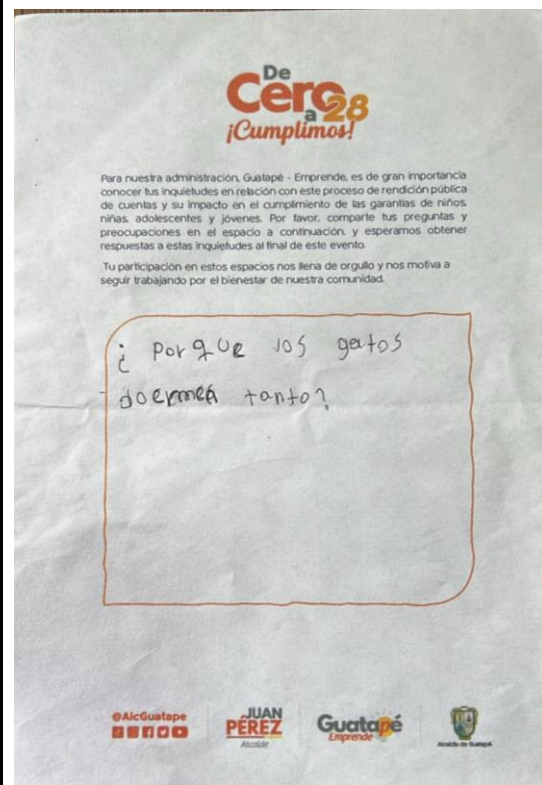 De
Cero
a 28
¡Cumplimos!
Para nuestra administración, Guatapé - Emprende, es de gran importancia
conocer tus inquietudes en relación con este proceso de rendición pública
de cuentas y su impacto en el cumplimiento de las garantías de niños,
niñas, adolescentes y jóvenes. Por favor, comparte tus preguntas y
preocupaciones en el espacio a continuación, y esperamos obtener
respuestas a estas inquietudes al final de este evento.
Tu participación en estos espacios nos llena de orgullo y nos motiva a
seguir trabajando por el bienestar de nuestra comunidad.
¿ Por que los gatos
doermen tanto?
@AlcGuatape
JUAN
PÉREZ
Alcalde
Guatapé
Emprende
Alcaldía de Guatapé